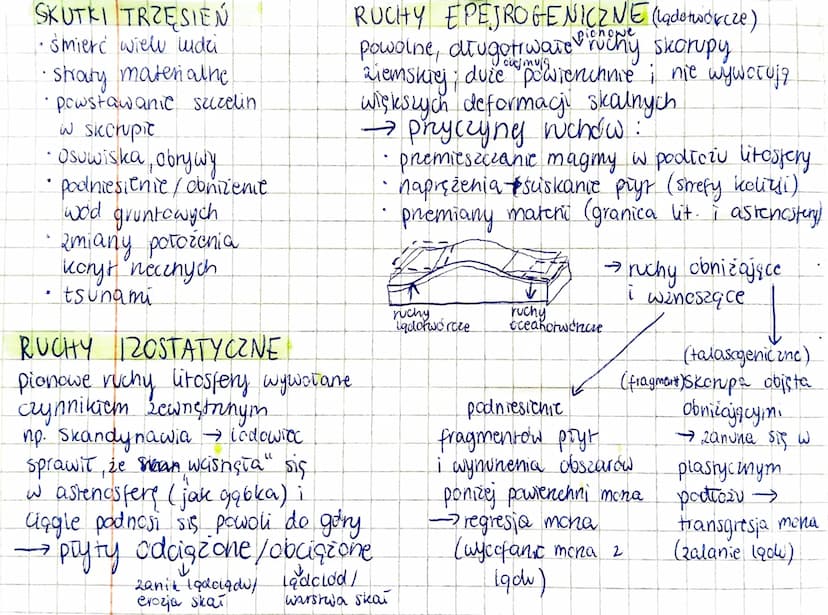 SKUTKI TRZĘSIEŃ
· śmierć wielu ludzi
· straty materialne
· powstawanie szczelin
w skorupie
· osuwiska, obrywy
· podniesienie / obniżenie
wód gruntowych
· zmiany położenia
koryt rzecznych
· tsunami
RUCHY EPEJROGENICZNE (lądotwórcze)
powolne, długotrwałe pionowe ruchy skorupy
ziemskiej; obejmują duże powierzchnie i nie wywołują
większych deformacji skalnych
→ przyczyny ruchów:
· przemieszczanie magmy w podłożu litosfery
· naprężenia + ściskanie płyt (strefy kolizji)
· przemiany materii (granica lit. i astenosfery)
ruchy
lądotwórcze
ruchy
oceanotwórcze
→ ruchy obniżające
i wznoszące
podniesienie
fragmentów płyt
i wynurzenia obszarów
poniżej powierzchni morza
→ regresja morza
(wycofanie morza z
lądu)
(talasogeniczne)
(fragment) skorupa objęta
obniżającymi
→ zanurza się w
plastycznym
podłożu →
transgresja morza
(zalanie lądu)
RUCHY IZOSTATYCZNE
pionowe ruchy litosfery wywołane
czynnikiem zewnętrznym
np. Skandynawia → lodowiec
sprawił, że "wcisnęła" się
w astenosferę ("jak gąbka) i
ciągle podnosi się powoli do góry
→ płyty odciążone / obciążone
zanik lądolodu /
erozja skał
lądolód /
warstwa skał